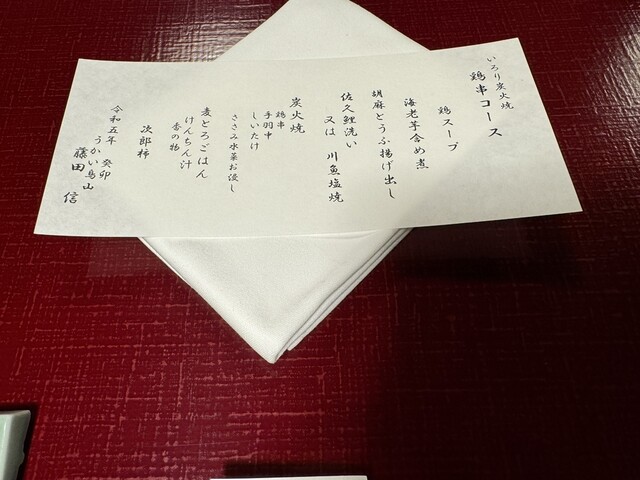 いろり炭火焼
鶏串コース
鶏スープ
海老芋含め煮
胡麻どうふ揚げ出し
佐久鯉洗い
又は 川魚塩焼
炭火焼
鶏串
手羽中
しいたけ
ささみ水菜お浸し
麦とろごはん
けんちん汁
香の物
次郎柿
令和五年 癸卯
うかい鳥山
藤田 信